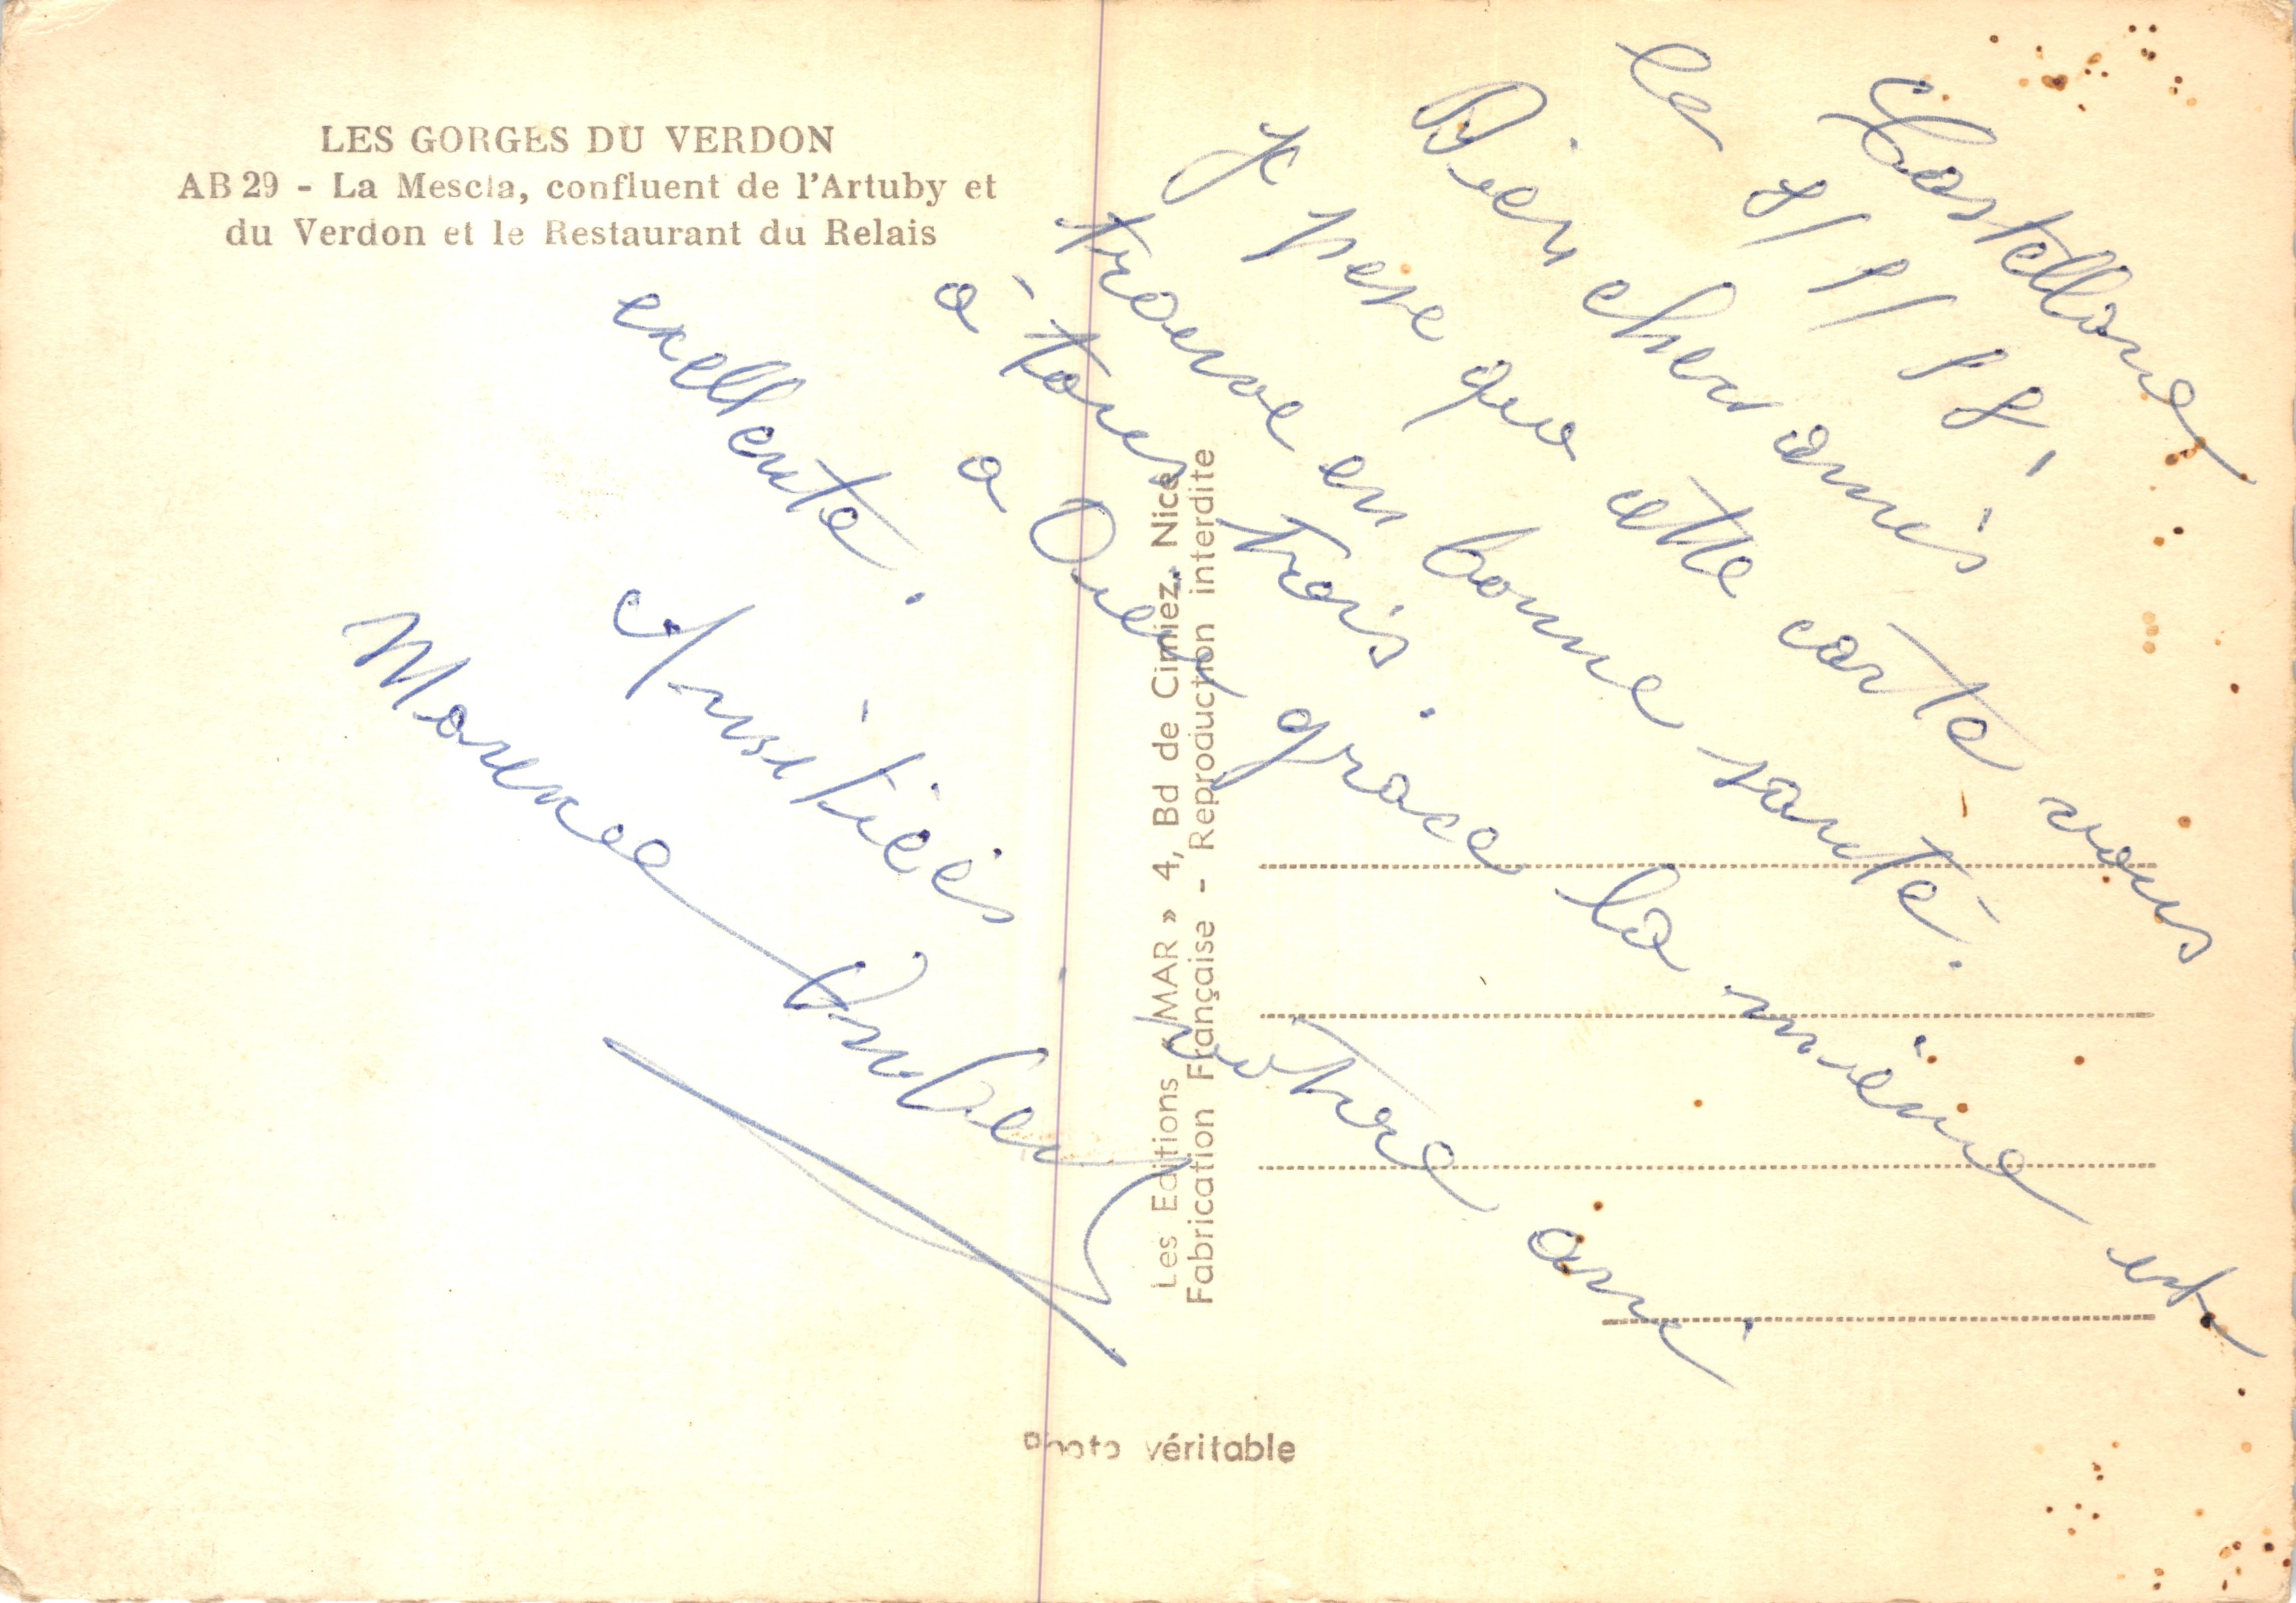 LES GORGES DU VERDON
AB 29 - La Mescla, confluent de l'Artuby et
du Verdon et le Restaurant du Relais
Castellane
le
Bien cher amis
Je pense que cette carte vous
trouve en bonne santé.
à tous trois.
a Dieu grace la mienne est
exellente.
Amitiés
votre ami
Les Editions « MAR » 4, Bd de Cimiez, Nice
Fabrication Française - Reproduction interdite
Photo véritable